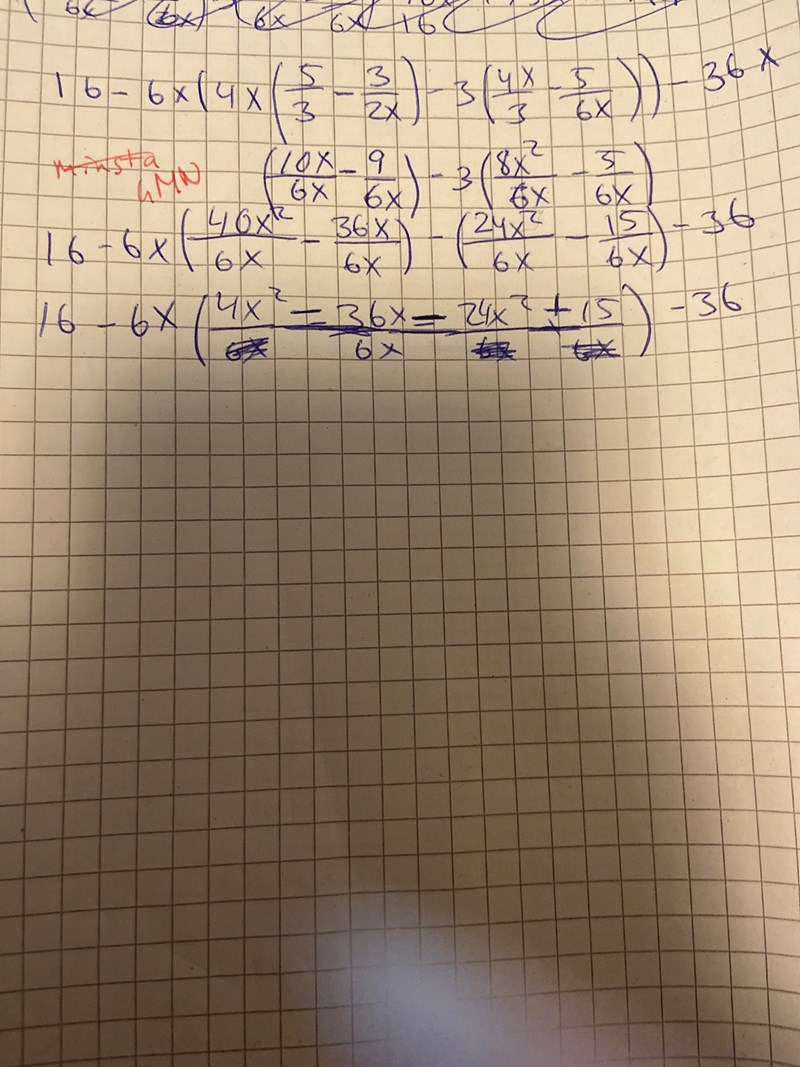 16 - 6x(4x(5/3 - 3/2x) - 3(4x/3 - 5/6x)) - 36x
minsta MN (10x/6x - 9/6x) - 3(8x²/6x - 5/6x)
16 - 6x(40x²/6x - 36x/6x) - (24x²/6x - 15/6x) - 36
16 - 6x(4x² - 36x - 24x² + 15 / 6x) - 36